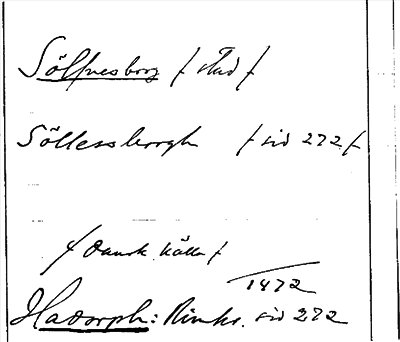 Sölfvesborg / stad /
Söllessborgh / sid 272 /
/ Dansk källa /
1472
Hadorph: Rimkr. sid 272